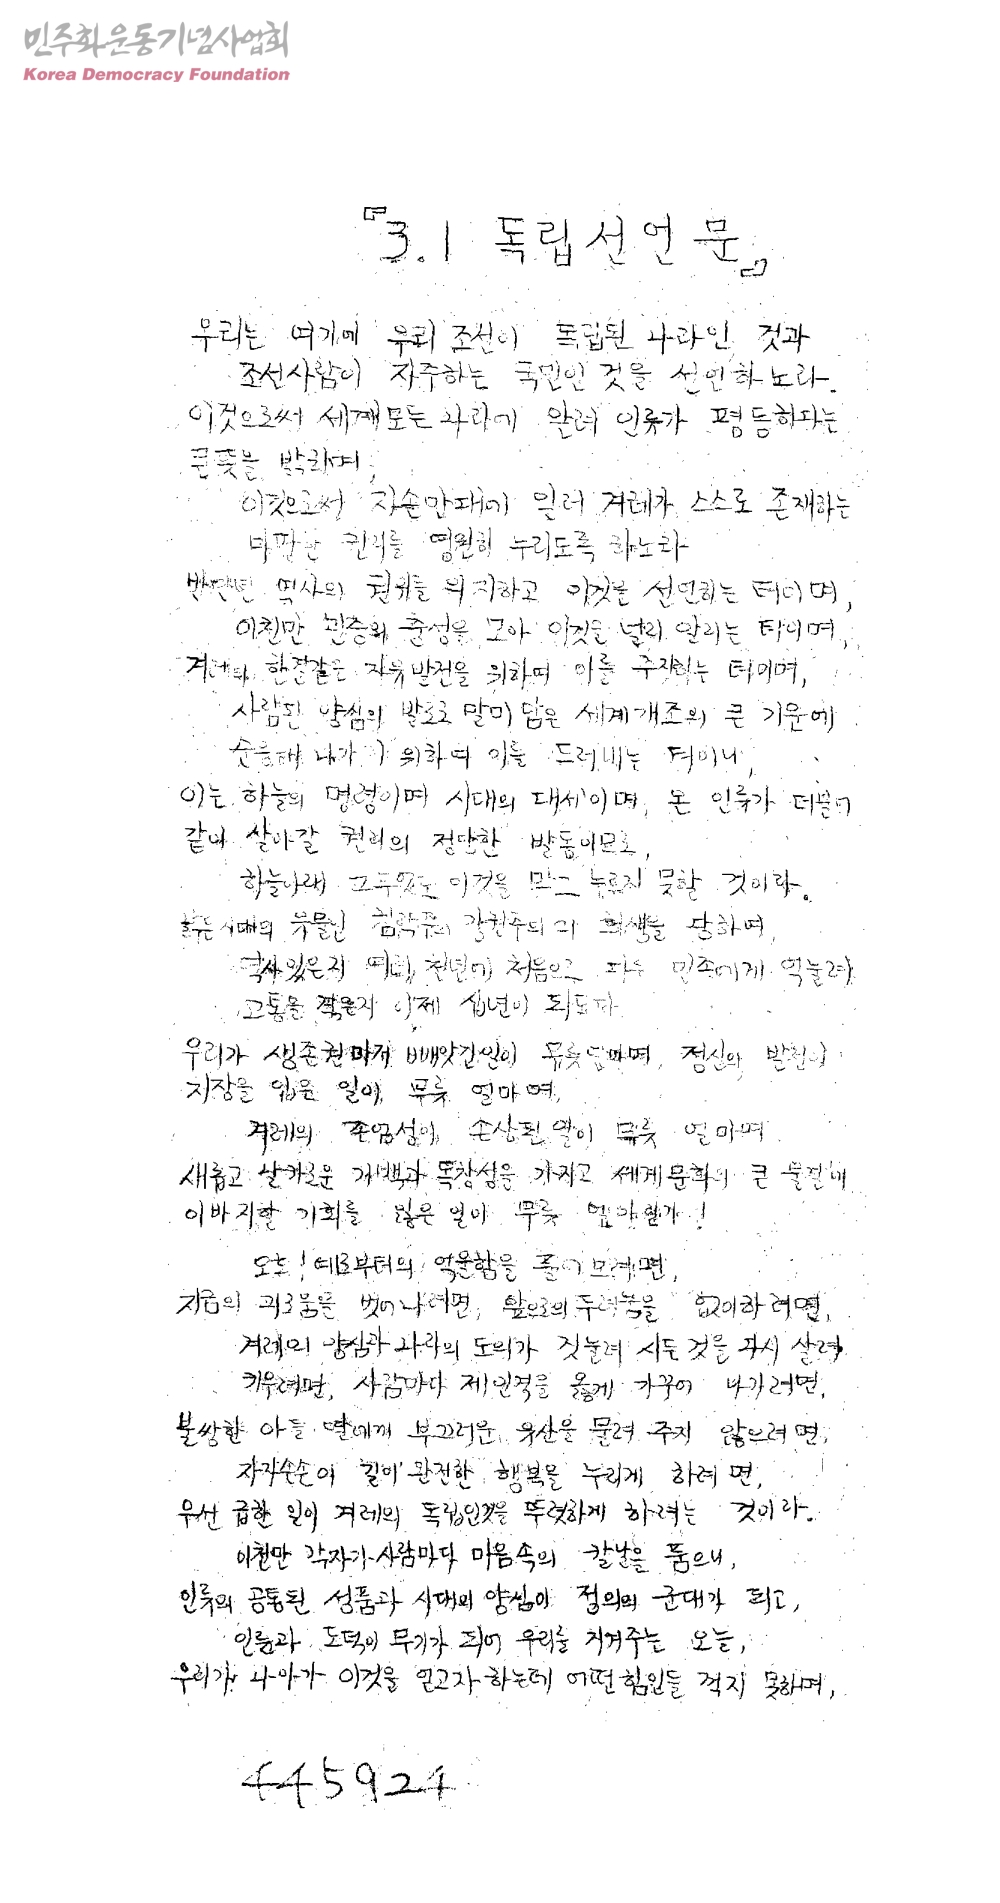 민주화운동기념사업회
Korea Democracy Foundation
『3.1 독립선언문』
우리는 여기에 우리 조선이 독립된 나라인 것과
조선사람이 자주하는 국민인 것을 선언하노라.
이것으로써 세계모든 나라에 알려 인류가 평등하다는
큰뜻을 밝히며,
이것으로써 자손만대에 일러 겨레가 스스로 존재하는
마땅한 권리를 영원히 누리도록 하노라
반만년 역사의 권위를 의지하고 이것을 선언하는 터이며,
이천만 민중의 충성을 모아 이것을 널리 알리는 터이며,
겨레의 한결같은 자유발전을 위하여 이를 주장하는 터이며,
사람된 양심의 발로로 말미암은 세계개조의 큰 기운에
순응해 나가기 위하여 이를 드러내는 터이니,
이는 하늘의 명령이며 시대의 대세이며, 온 인류가 더불어
같이 살아갈 권리의 정당한 발동이므로,
하늘아래 그무엇도 이것을 막고 누르지 못할 것이라.
낡은시대의 유물인 침략주의 강권주의의 희생을 당하여,
역사있은지 여러 천년에 처음으로 다른 민족에게 억눌려
고통을 겪은지 이제 십년이 되도다
우리가 생존권마저 빼앗긴일이 무릇얼마며, 정신의 발전이
지장을 입은 일이 무릇 얼마며,
겨레의 존엄성이 손상된일이 무릇 얼마며
새롭고 날카로운 기백과 독창성을 가지고 세계문화의 큰 물결에
이바지할 기회를 잃은 일이 무릇 얼마인가!
오호! 예로부터의 억울함을 풀어보려면,
지금의 괴로움을 벗어나려면, 앞으로의 두려움을 없이하려면,
겨레의 양심과 나라의 도의가 짓눌려 시든 것을 다시 살려
키우려면, 사람마다 제인격을 옳게 가꾸어 나가려면,
불쌍한 아들 딸에게 부끄러운 유산을 물려 주지 않으려면,
자자손손이 길이 완전한 행복을 누리게 하려면,
우선 급한 일이 겨레의 독립인것을 뚜렷하게 하려는 것이라.
이천만 각자가 사람마다 마음속의 칼날을 품으니,
인류의 공통된 성품과 시대의 양심이 정의의 군대가 되고,
인륜과 도덕이 무기가 되어 우리를 지켜주는 오늘,
우리가 나아가 이것을 얻고자 하는데 어떤힘인들 꺽지 못하며,
445924